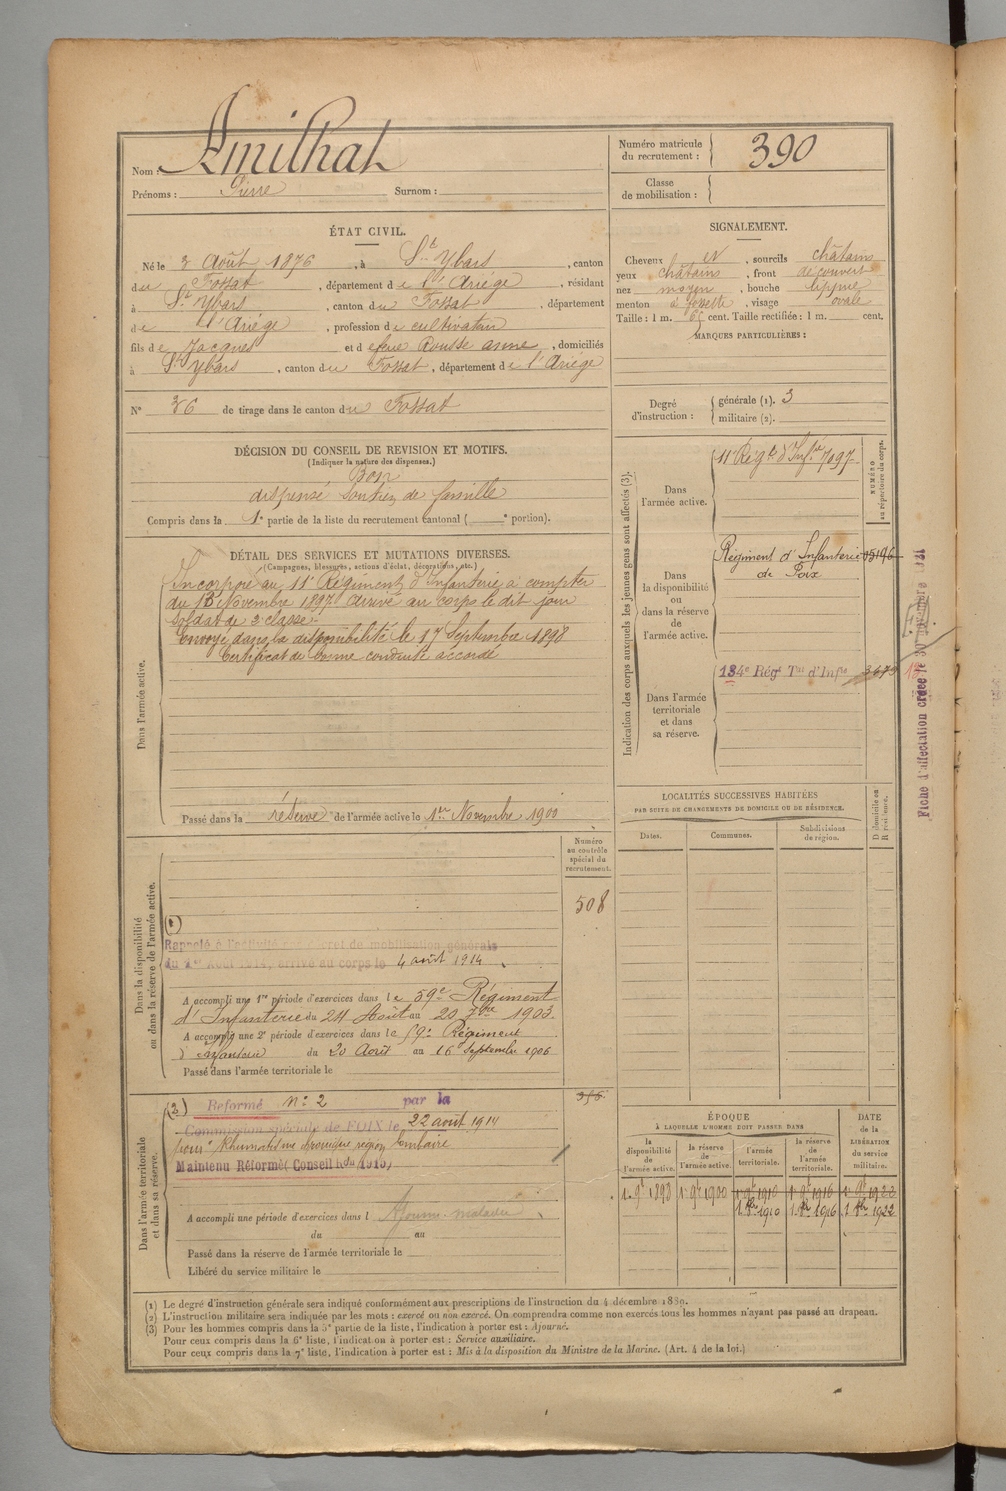 Nom : Amilhat
Prénoms : Pierre Surnom :
Numéro matricule du recrutement : 390
Classe de mobilisation :
ÉTAT CIVIL.
Né le 3 Août 1876, à St Ybars, canton
du Fossat, département de l'Ariége, résidant
à St Ybars, canton du Fossat, département
de l'Ariége, profession de cultivateur
fils de Jacques et de feue Rousse anne, domiciliés
à St Ybars, canton du Fossat, département de l'Ariége
N° 36 de tirage dans le canton du Fossat
SIGNALEMENT.
Cheveux et, sourcils châtains
yeux châtains, front découvert
nez moyen, bouche lippue
menton à fossette, visage ovale
Taille : 1 m. cent. Taille rectifiée : 1 m. cent.
MARQUES PARTICULIÈRES :
Degré d'instruction : générale (1). 3
militaire (2).
DÉCISION DU CONSEIL DE REVISION ET MOTIFS.
(Indiquer la nature des dispenses.)
Bon
dispensé soutien de famille
Compris dans la 1e partie de la liste du recrutement cantonal ( e portion).
DÉTAIL DES SERVICES ET MUTATIONS DIVERSES.
(Campagnes, blessures, actions d'éclat, décorations, etc.)
Dans l'armée active.
Incorporé au 11e Régiment d'Infanterie à compter
du 13 Novembre 1897. arrivé au corps le dit jour
soldat de 2e classe.
Envoyé dans la disponibilité le 17 Septembre 1898
Certificat de bonne conduite accordé
Passé dans la réserve de l'armée active le 1er Novembre 1900
Indication des corps auxquels les jeunes gens sont affectés (3).
NUMÉRO au répertoire du corps.
Dans l'armée active.
11e Régt d'Infie 7097
Dans la disponibilité ou dans la réserve de l'armée active.
Régiment d'Infanterie
de Foix
Dans l'armée territoriale et dans sa réserve.
134e Régt Tal d'Infie
Fiche d'affectation créée le 30
LOCALITÉS SUCCESSIVES HABITÉES
PAR SUITE DE CHANGEMENTS DE DOMICILE OU DE RÉSIDENCE.
Dates. Communes. Subdivisions de région. D. domicile ou R. résidence.
Numéro au contrôle spécial du recrutement.
508
Dans la disponibilité ou dans la réserve de l'armée active.
(1)
Rappelé à l'activité décret de mobilisation générale
du 1er Août 1914, arrivé au corps le 4 août 1914
A accompli une 1re période d'exercices dans le 59e Régiment
d'Infanterie du 24 Août au 20 7bre 1903
A accompli une 2e période d'exercices dans le 59e Régiment
d'infanterie du 20 Août au 16 septembre 1906
Passé dans l'armée territoriale le
Dans l'armée territoriale et dans sa réserve.
(2) Reformé n° 2 par la
Commission spéciale de FOIX le 22 août 1914
pour Rhumatisme chronique région lombaire
Maintenu Réformé Conseil 1915
A accompli une période d'exercices dans l Ajourné malade
du au
Passé dans la réserve de l'armée territoriale le
Libéré du service militaire le
ÉPOQUE
À LAQUELLE L'HOMME DOIT PASSER DANS
la disponibilité de l'armée active. la réserve de l'armée active. l'armée territoriale. la réserve de l'armée territoriale.
DATE de la LIBÉRATION du service militaire.
1er 9e 1898 1er 9e 1900 1er 9e 1910 1er 9e 1916 1er 9e 1922
1 8bre 1910 1 8bre 1916 1 8bre 1922
(1) Le degré d'instruction générale sera indiqué conformément aux prescriptions de l'instruction du 4 décembre 1889.
(2) L'instruction militaire sera indiquée par les mots : exercé ou non exercé. On comprendra comme non exercés tous les hommes n'ayant pas passé au drapeau.
(3) Pour les hommes compris dans la 5e partie de la liste, l'indication à porter est : Ajourné.
Pour ceux compris dans la 6e liste, l'indication à porter est : Service auxiliaire.
Pour ceux compris dans la 7e liste, l'indication à porter est : Mis à la disposition du Ministre de la Marine. (Art. 4 de la loi.)